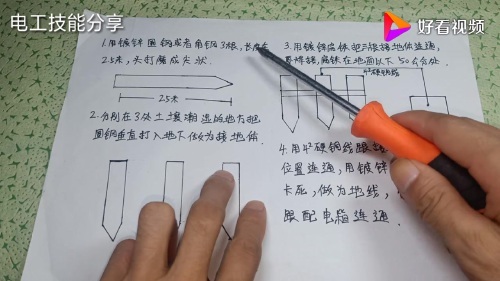 电工技能分享
好看视频
1.用镀锌圆钢或者角钢3根,长度在
2.5米,头打磨成尖状.
2.5米
2.分别在3处土壤潮湿的地方把
圆钢垂直打入地下做为接地体.
3.用镀锌扁铁把3根接地体连通,
焊接,扁铁在地面以下50公分处.
4.用 硬铜线跟
位置连通,用镀锌
卡死,做为地线,
跟配电箱连通.